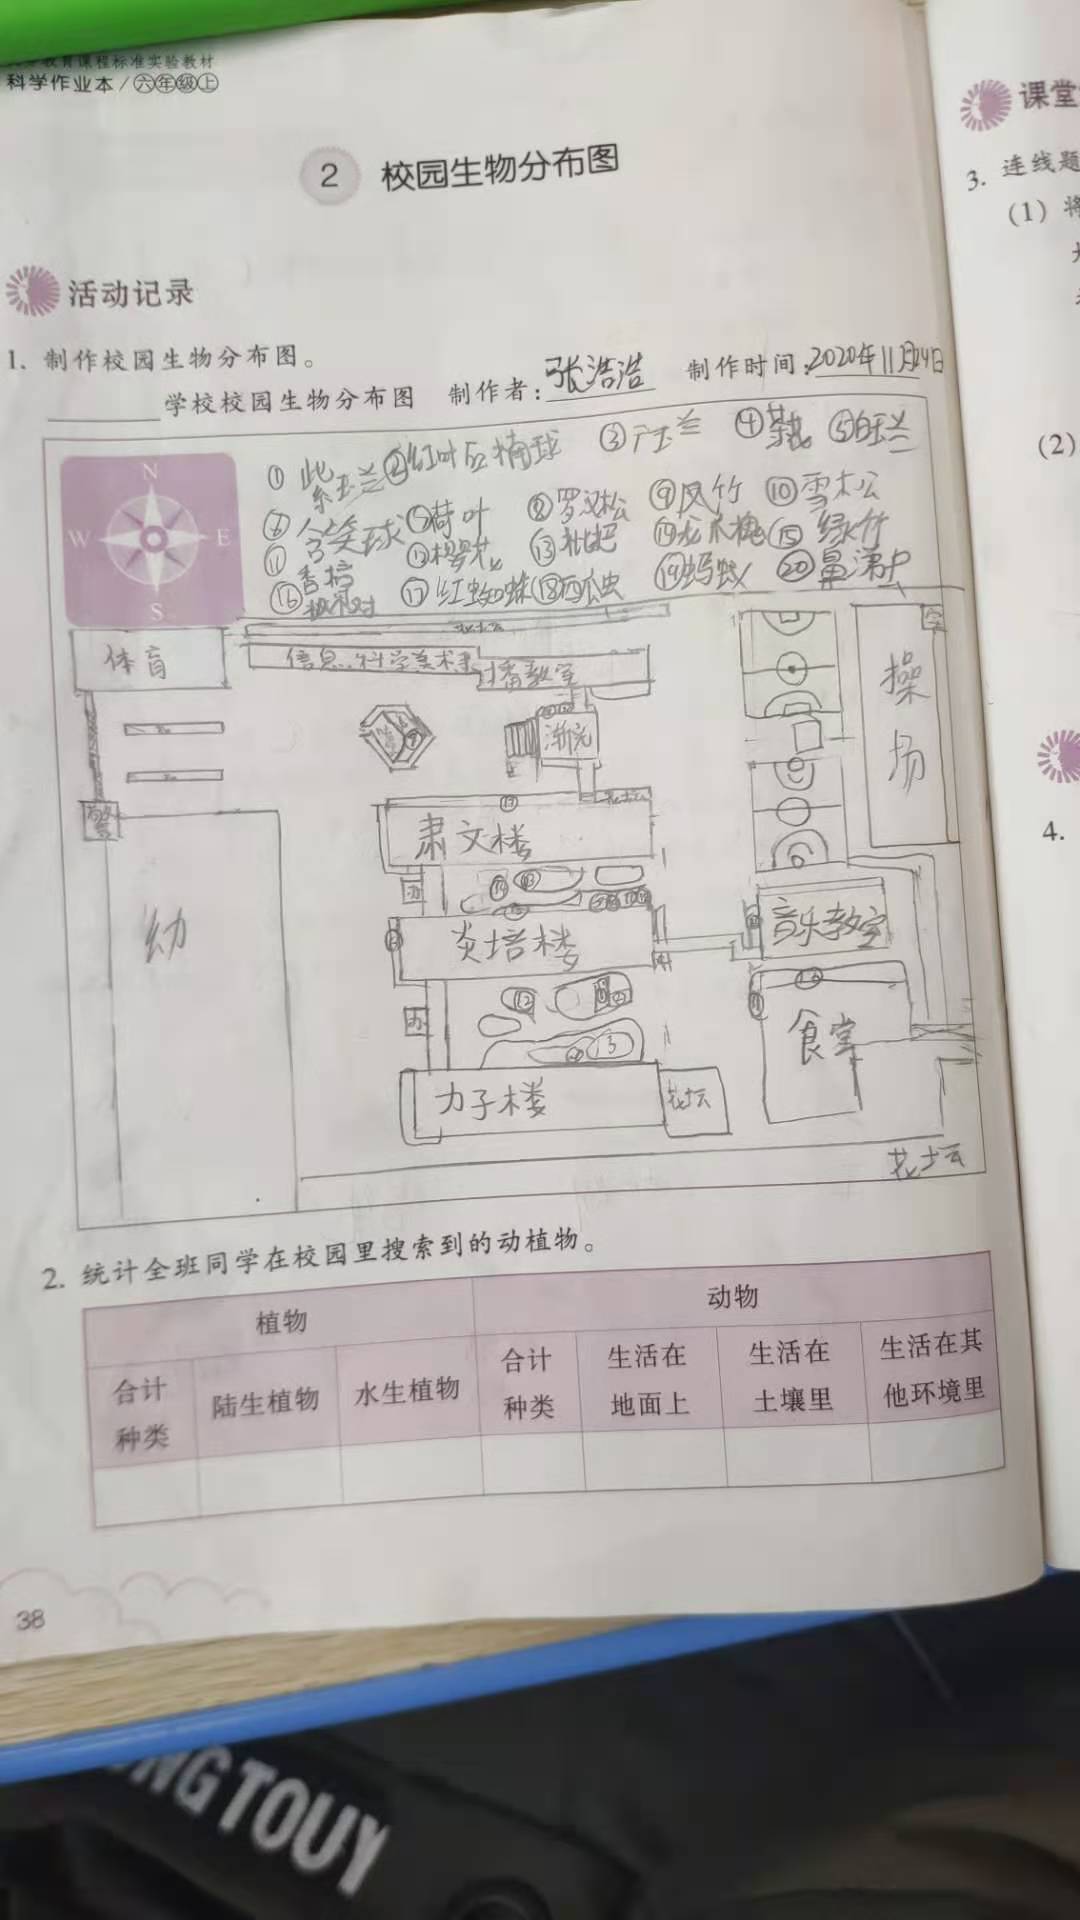 教育课程标准实验教材
科学作业本/六年级上
2 校园生物分布图
活动记录
1. 制作校园生物分布图。
学校校园生物分布图 制作者:张浩浩 制作时间:2020年11月24日
N
W E
S
① 紫玉兰 ②红叶石楠球 ③广玉兰 ④茶花 ⑤白玉兰
⑥含笑球 ⑦荷叶 ⑧罗汉松 ⑨凤竹 ⑩雪松
⑪香樟 ⑫樱花 ⑬枇杷 ⑭龙爪槐 ⑮绿竹
⑯ ⑰红蜘蛛 ⑱西瓜虫 ⑲蚂蚁 ⑳鼻涕虫
体育
信息 科学美术
播教室
操场
肃文楼
花坛
警
幼
炎培楼
音乐教室
食堂
力子楼
花坛
花坛
2. 统计全班同学在校园里搜索到的动植物。
植物 动物
合计种类 陆生植物 水生植物 合计种类 生活在地面上 生活在土壤里 生活在其他环境里
38
课堂
3. 连线题
(1) 将
(2)
4.
NG TOUY